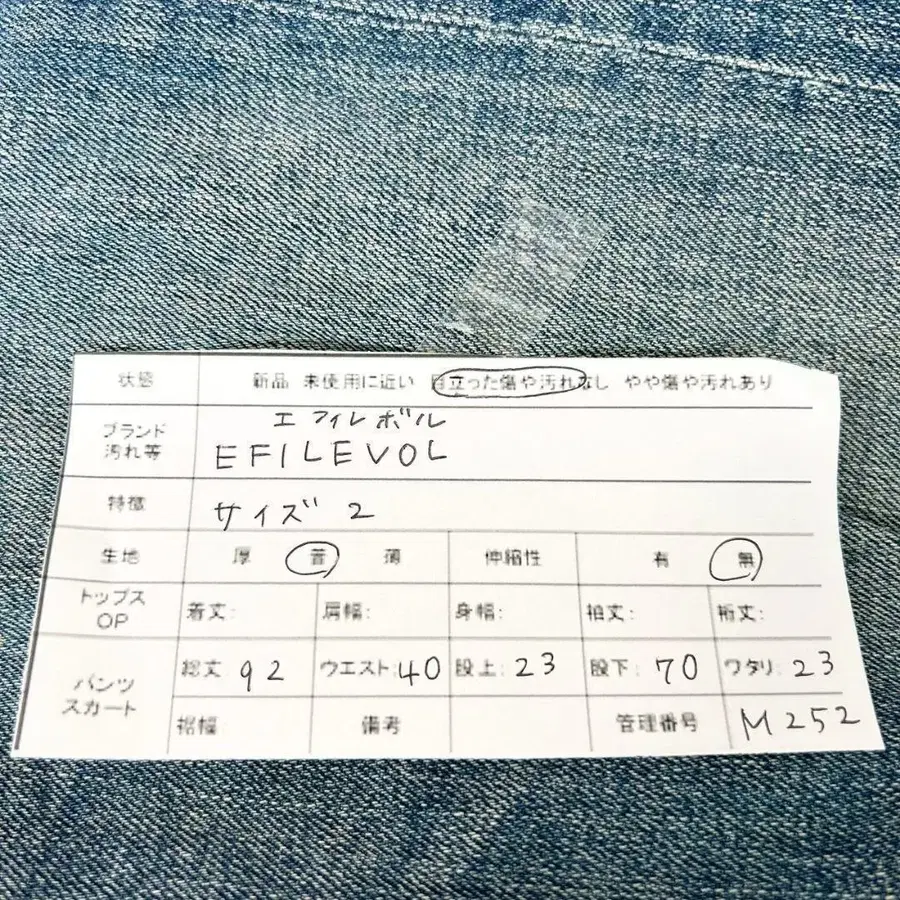 状態 新品 未使用に近い 目立った傷や汚れなし やや傷や汚れあり
ブランド 汚れ等 エフィレボル
EFILEVOL
特徴 サイズ 2
生地 厚 普 薄 伸縮性 有 無
トップス OP 着丈: 肩幅: 身幅: 袖丈: 裄丈:
パンツ スカート 総丈 92 ウエスト:40 股上:23 股下:70 ワタリ:23
裾幅 備考 管理番号 M252